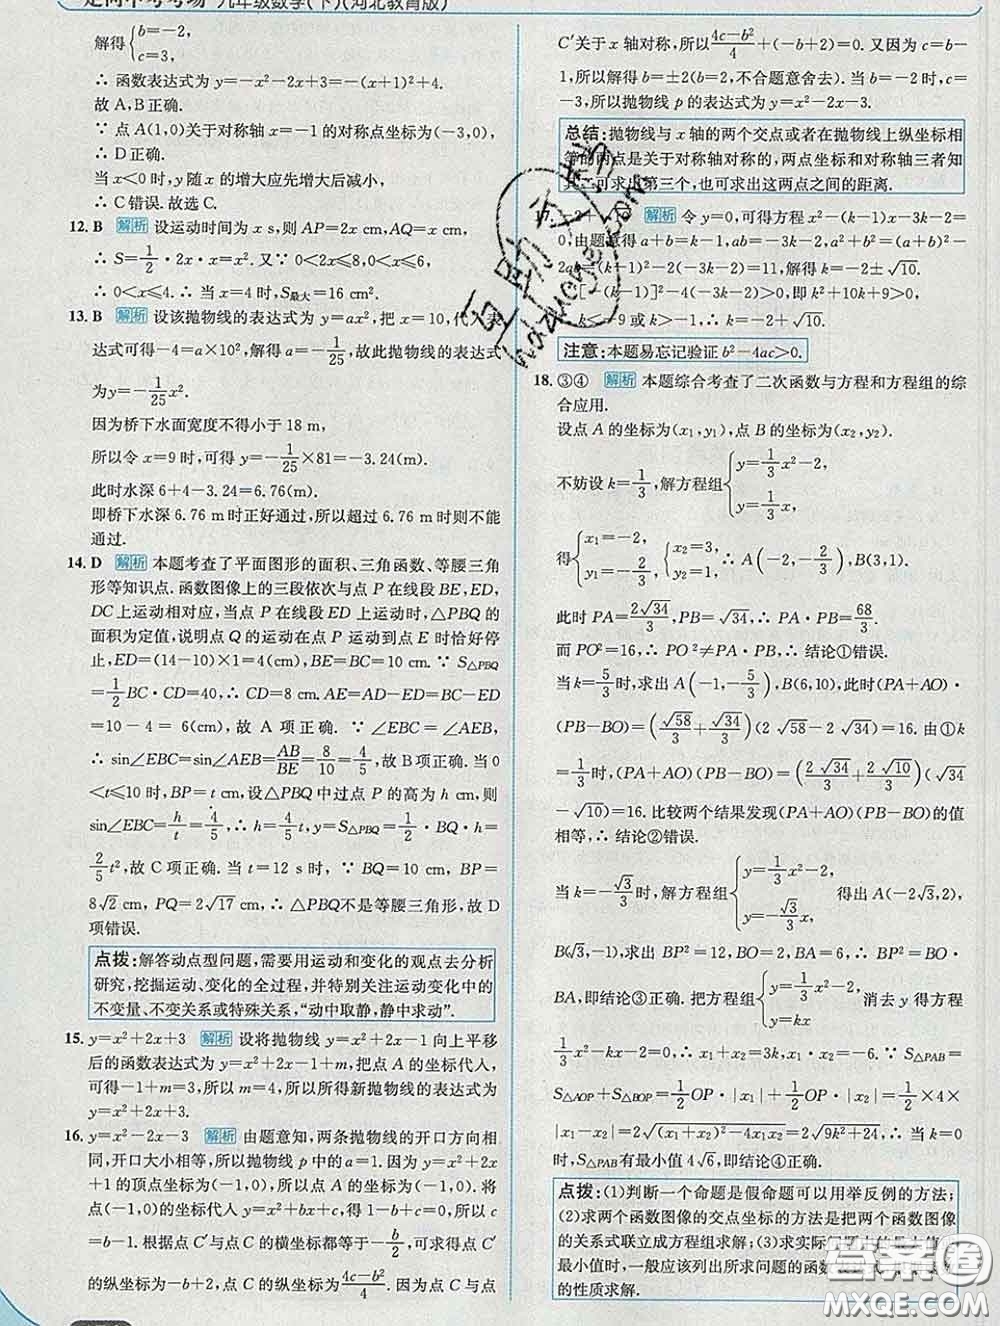 走向中考考场 九年级数学(下)(河北教育版)
解得{b=-2,
c=3,
∴ 函数表达式为 y=-x²-2x+3=-(x+1)²+4.
故 A,B正确.
∵ 点 A(1,0)关于对称轴 x=-1 的对称点坐标为(-3,0),
∴ D正确.
当 x<0 时,y 随 x 的增大应先增大后减小,
∴ C错误.故选 C.
12. B 解析 设运动时间为 x s,则 AP=2x cm,AQ=x cm,
∴ S=1/2·2x·x=x². 又∵ 0<2x≤8,0<x≤6,
∴ 0<x≤4. ∴ 当 x=4 时,S最大=16 cm².
13. B 解析 设该抛物线的表达式为 y=ax²,把 x=10,代入表
达式可得-4=a×10²,解得 a=-1/25,故此抛物线的表达式
为 y=-1/25x².
因为桥下水面宽度不得小于 18 m,
所以令 x=9 时,可得 y=-1/25×81=-3.24(m).
此时水深 6+4-3.24=6.76(m).
即桥下水深 6.76 m 时正好通过,所以超过 6.76 m 时则不能
通过.
14. D 解析 本题考查了平面图形的面积、三角函数、等腰三角
形等知识点.函数图像上的三段依次与点 P 在线段 BE,ED,
DC 上运动相对应,当点 P 在线段 ED 上运动时,△PBQ 的
面积为定值,说明点 Q 的运动在点 P 运动到点 E 时恰好停
止,ED=(14-10)×1=4(cm),BE=BC=10 cm. ∵ S△PBQ
=1/2BC·CD=40,∴ CD=8 cm. AE=AD-ED=BC-ED
=10-4=6(cm),故 A 项正确. ∵ ∠EBC=∠AEB,
∴ sin∠EBC=sin∠AEB=AB/BE=8/10=4/5,故 B项正确.当 0
<t≤10 时,BP=t cm,设△PBQ 中过点 P 的高为 h cm,则
sin∠EBC=h/t=4/5,∴ h=4/5t,y=S△PBQ=1/2·BQ·h=
2/5t²,故 C 项正确.当 t=12 s 时,∵ BQ=10 cm,BP=
8√2 cm,PQ=2√17 cm,∴ △PBQ不是等腰三角形,故 D
项错误.
点拨:解答动点型问题,需要用运动和变化的观点去分析
研究,挖掘运动、变化的全过程,并特别关注运动变化中的
不变量、不变关系或特殊关系,“动中取静,静中求动”.
15. y=x²+2x+3 解析 设将抛物线 y=x²+2x-1 向上平移
后的函数表达式为 y=x²+2x-1+m,把点 A 的坐标代入,
可得-1+m=3,所以 m=4,所以所得新抛物线的表达式为
y=x²+2x+3.
16. y=x²-2x-3 解析 由题意知,两条抛物线的开口方向相
同,开口大小相等,所以抛物线 p 中的 a=1. 因为 y=x²+2x
+1 的顶点坐标为(-1,0),所以点 A 的坐标为(-1,0). 将
点 A 的坐标代入 y=x²+bx+c,得 1-b+c=0,所以 c
=b-1. 根据点 C′与点 C 的横坐标都等于-b/2,可求得点 C
的纵坐标为(4c-b²)/4. 因为点 C 与点
C′关于 x 轴对称,所以(4c-b²)/4+(-b+2)=0. 又因为 c=b-
1,所以解得 b=±2(b=2,不合题意舍去).当 b=-2 时,c=
-3,所以抛物线 p 的表达式为 y=x²-2x-3.
总结:抛物线与 x 轴的两个交点或者在抛物线上纵坐标相
等的两点是关于对称轴对称的,两点坐标和对称轴三者知
其二可求出第三个,也可求出这两点之间的距离.
17. -2+√10 解析 令 y=0,可得方程 x²-(k-1)x-3k-2=
0,由题意得 a+b=k-1,ab=-3k-2,a²+b²=(a+b)²-
2ab=(k-1)²-2(-3k-2)=11,解得 k=-2±√10.
∵ [-(k-1)]²-4(-3k-2)>0,即 k²+10k+9>0,
∴ k<-9 或 k>-1,∴ k=-2+√10.
注意:本题易忘记验证 b²-4ac>0.
18. ③④ 解析 本题综合考查了二次函数与方程和方程组的综
合应用.
设点 A 的坐标为(x₁,y₁),点 B 的坐标为(x₂,y₂).
不妨设 k=1/3,解方程组{y=1/3x²-2,
y=1/3x,
得{x₁=-2,
y₁=-2/3,
{x₂=3,
y₂=1,
∴ A(-2,-2/3),B(3,1).
此时 PA=2√34/3,PB=√34,∴ PA·PB=68/3.
而 PO²=16,∴ PO²≠PA·PB,∴ 结论①错误.
当 k=5/3时,求出 A(-1,-5/3),B(6,10),此时(PA+AO)·
(PB-BO)=(√58/3+√34/3)(2√58-2√34)=16. 由①k
=1/3时,(PA+AO)(PB-BO)=(2√34/3+2√10/3)(√34
-√10)=16. 比较两个结果发现(PA+AO)(PB-BO)的值
相等,∴ 结论②错误.
当 k=-√3/3时,解方程组{y=1/3x²-2,
y=-√3/3x,
得出 A(-2√3,2),
B(√3,-1),求出 BP²=12,BO=2,BA=6,∴ BP²=BO·
BA,即结论③正确.把方程组{y=1/3x²-2,
y=kx
消去 y 得方程
1/3x²-kx-2=0,∴ x₁+x₂=3k,x₁x₂=-6. ∵ S△PAB=
S△AOP+S△BOP=1/2OP·|x₁|+1/2OP·|x₂|=1/2×4×
|x₁-x₂|=2√((x₁+x₂)²-4x₁x₂)=2√(9k²+24),∴ 当 k=0
时,S△PAB有最小值 4√6,即结论④正确.
点拨:(1)判断一个命题是假命题可以用举反例的方法;
(2)求两个函数图像的交点坐标的方法是把两个函数图像
的关系式联立成方程组求解;(3)求实际问题中的最大值、
最小值时,一般应该列出所求问题的函数表达式,
的性质求解.
答案圈
MXQE.COM